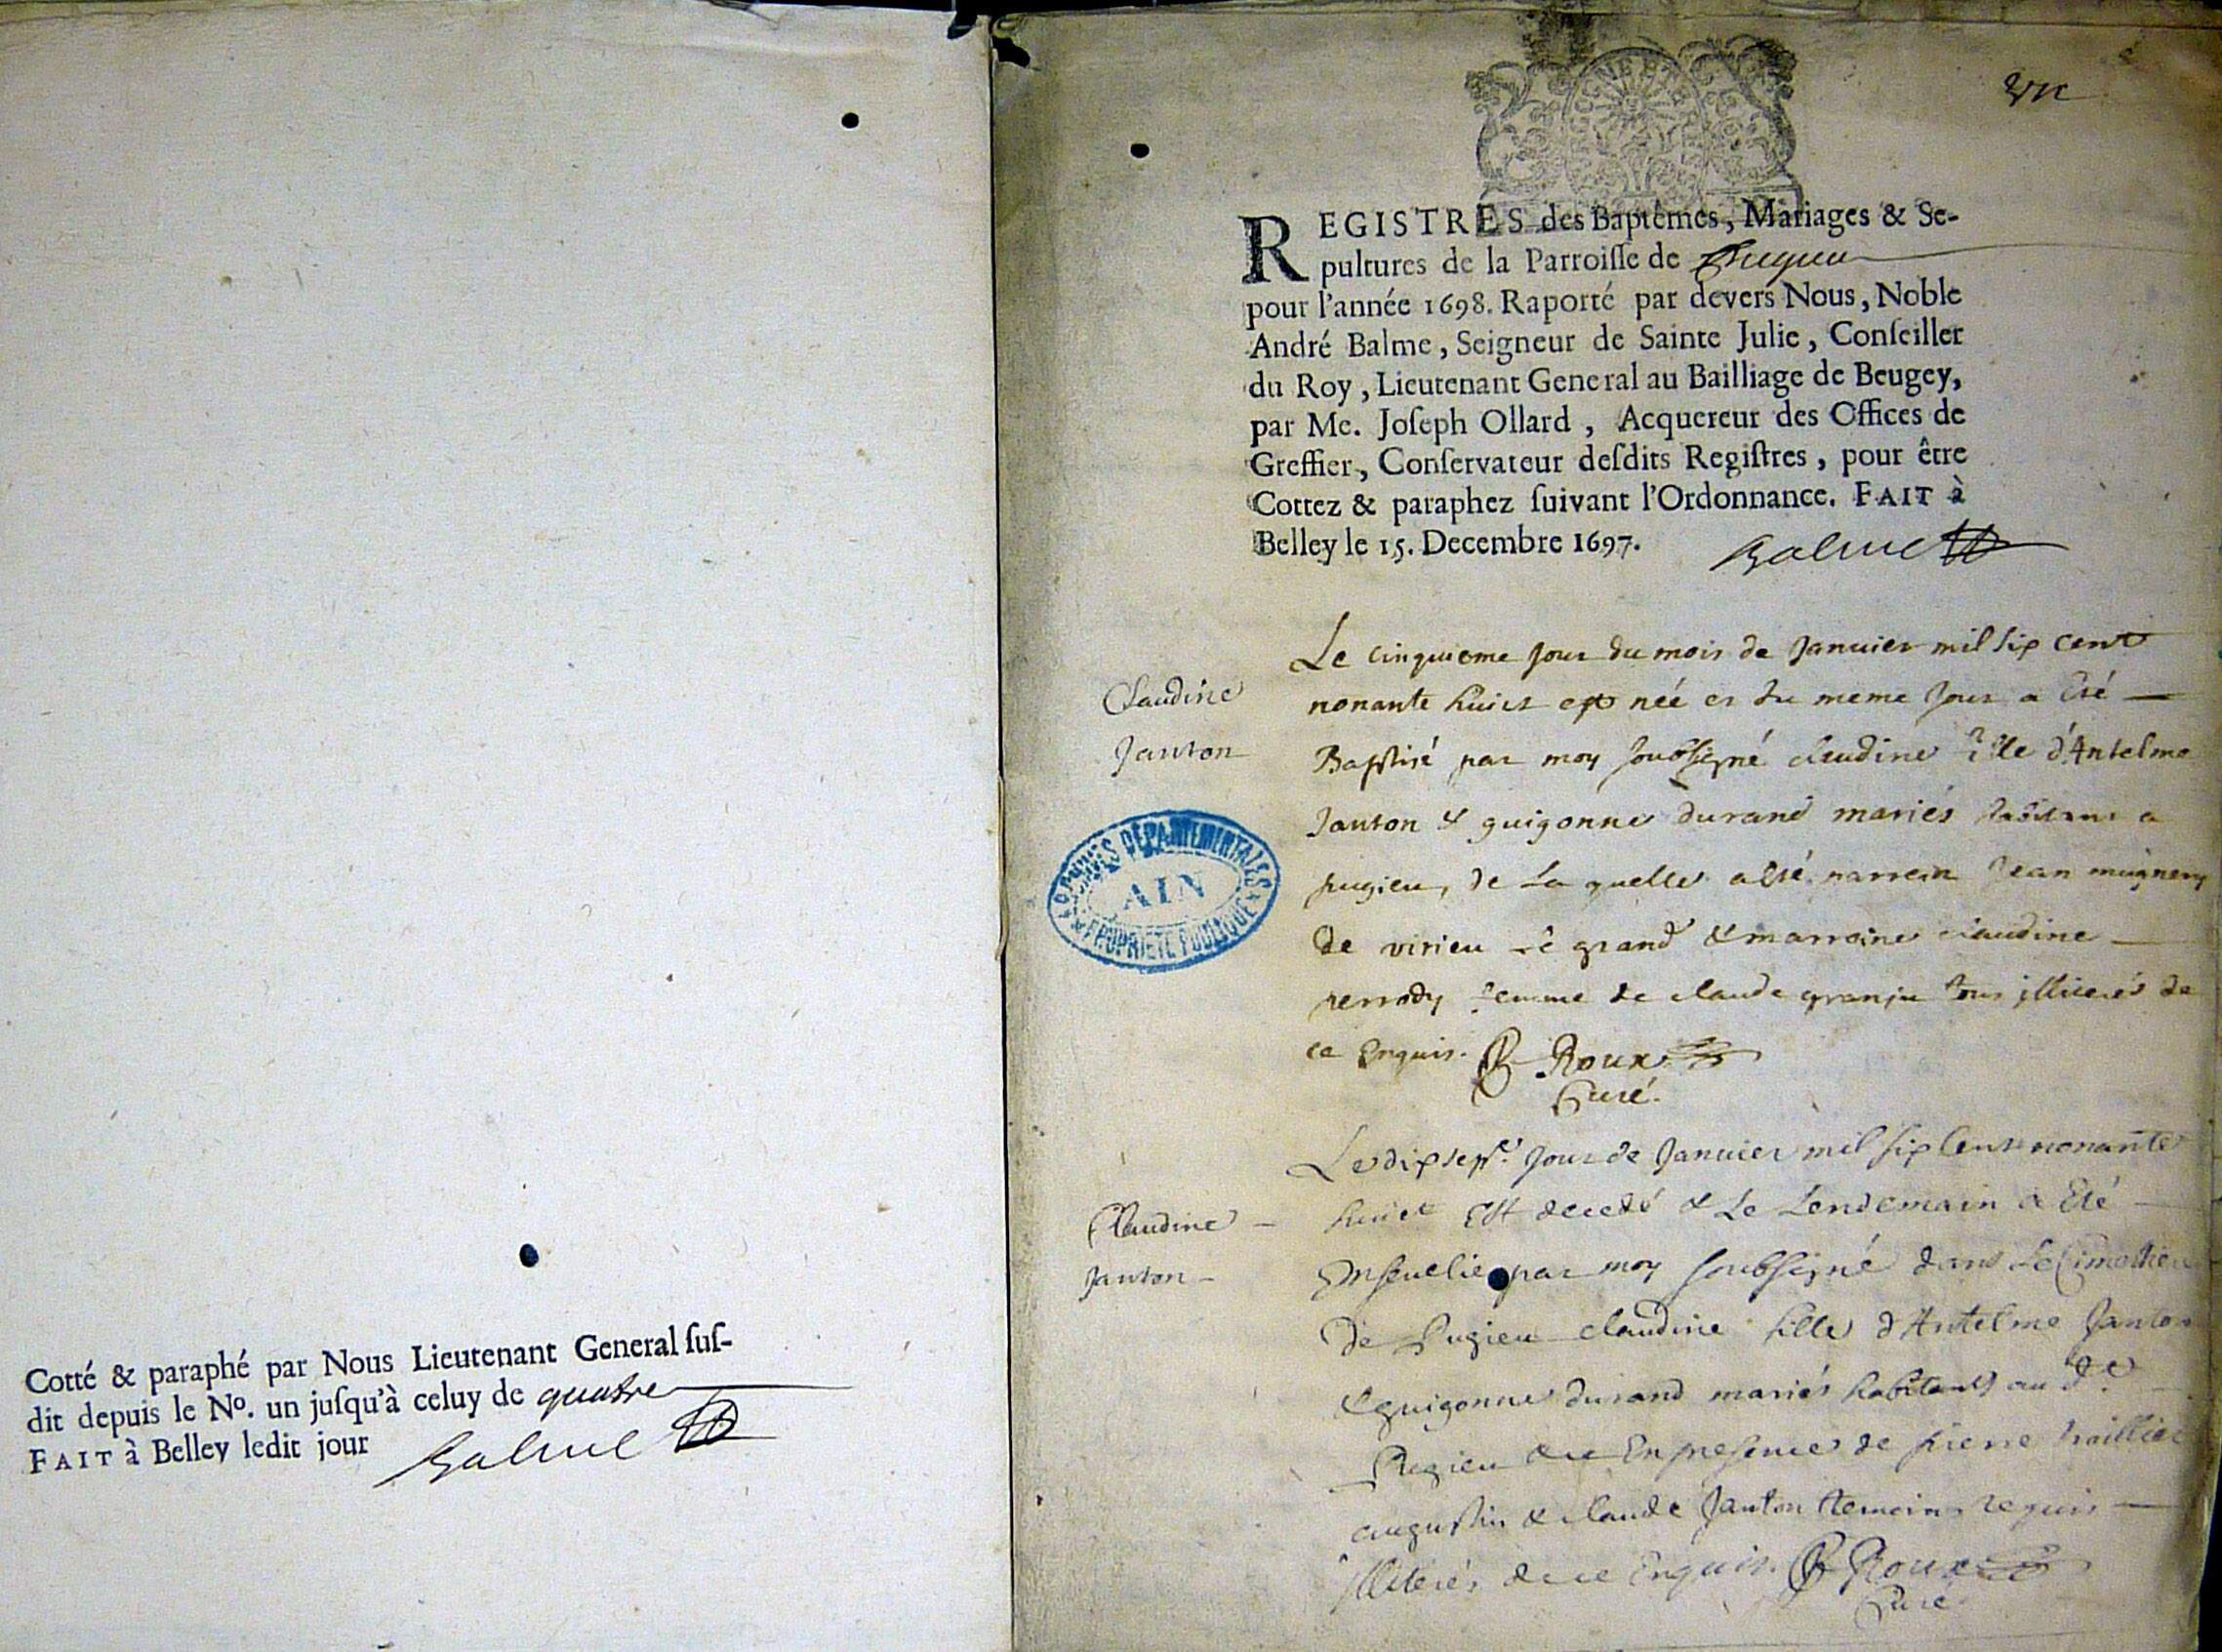 Cotté & paraphé par Nous Lieutenant General suſ-
dit depuis le Nº. un juſqu'à celuy de quatre
FAIT à Belley ledit jour Balme
un
REGISTRES des Baptêmes, Mariages & Se-
pultures de la Parroiſſe de Pugieu
pour l'année 1698. Raporté par devers Nous, Noble
André Balme, Seigneur de Sainte Julie, Conſeiller
du Roy, Lieutenant General au Bailliage de Beugey,
par Me. Joſeph Ollard, Acquereur des Offices de
Greffier, Conſervateur deſdits Regiſtres, pour être
Cottez & paraphez ſuivant l'Ordonnance. FAIT à
Belley le 15. Decembre 1697. Balme
Claudine
Janton
Le cinquieme jour du mois de Janvier mil six cent
nonante huict est née et du meme jour a Eté
Baptisé par moy soubsigné claudine fille d'Antelme
Janton & guigonne durand mariés habitans a
pugieu, de La quelle a Eté parrein Jean mugnery
de virieu le grand & marraine claudine
perrody femme de claude granju tous illiterés de
ce Enquis. Roux
Curé.
ARCHIVES DÉPARTEMENTALES
AIN
PROPRIÉTÉ PUBLIQUE
Claudine
Janton
Le dix sept.e jour de Janvier mil six Cent nonante
huict Est decedé & Le Lendemain a Eté
Ensevelie par moy soubsigné dans Le Cimetiere
de Pugieu claudine fille d'Antelme Janton
& guigonne durand mariés habitans au d.
Pugieu En presence de pierre
augustin & claude Janton temoins requis
illiterés de ce Enquis. Roux
Curé